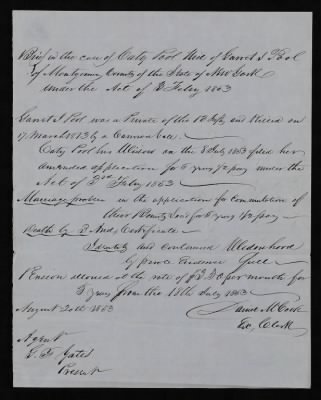 Brief in the case of Caty Pool Wid of Garret I Pool
of Montgomery County of the State of New York
under the Act of 3 Feby 1853
Garret I Pool was a Private of the 13 Inf, and Killed on
17 March 1813 by a Cannon ball.
Caty Pool his Widow on the 8 July 1853 filed her
amended application for 5 yrs 1/2 pay under the
Act of 3rd Feby 1853
Marriage proven in the application for commutation of
their Bounty Land for 5 yrs 1/2 pay
Death by 3 And. Certificate
Identity and continued Widowhood
by private evidence full
Pension allowed at the rate of per month for
5 years from the 18th July 1853
August 20th 1853
Daniel M Cook
Ex, Clerk
Agent
Yates
Present